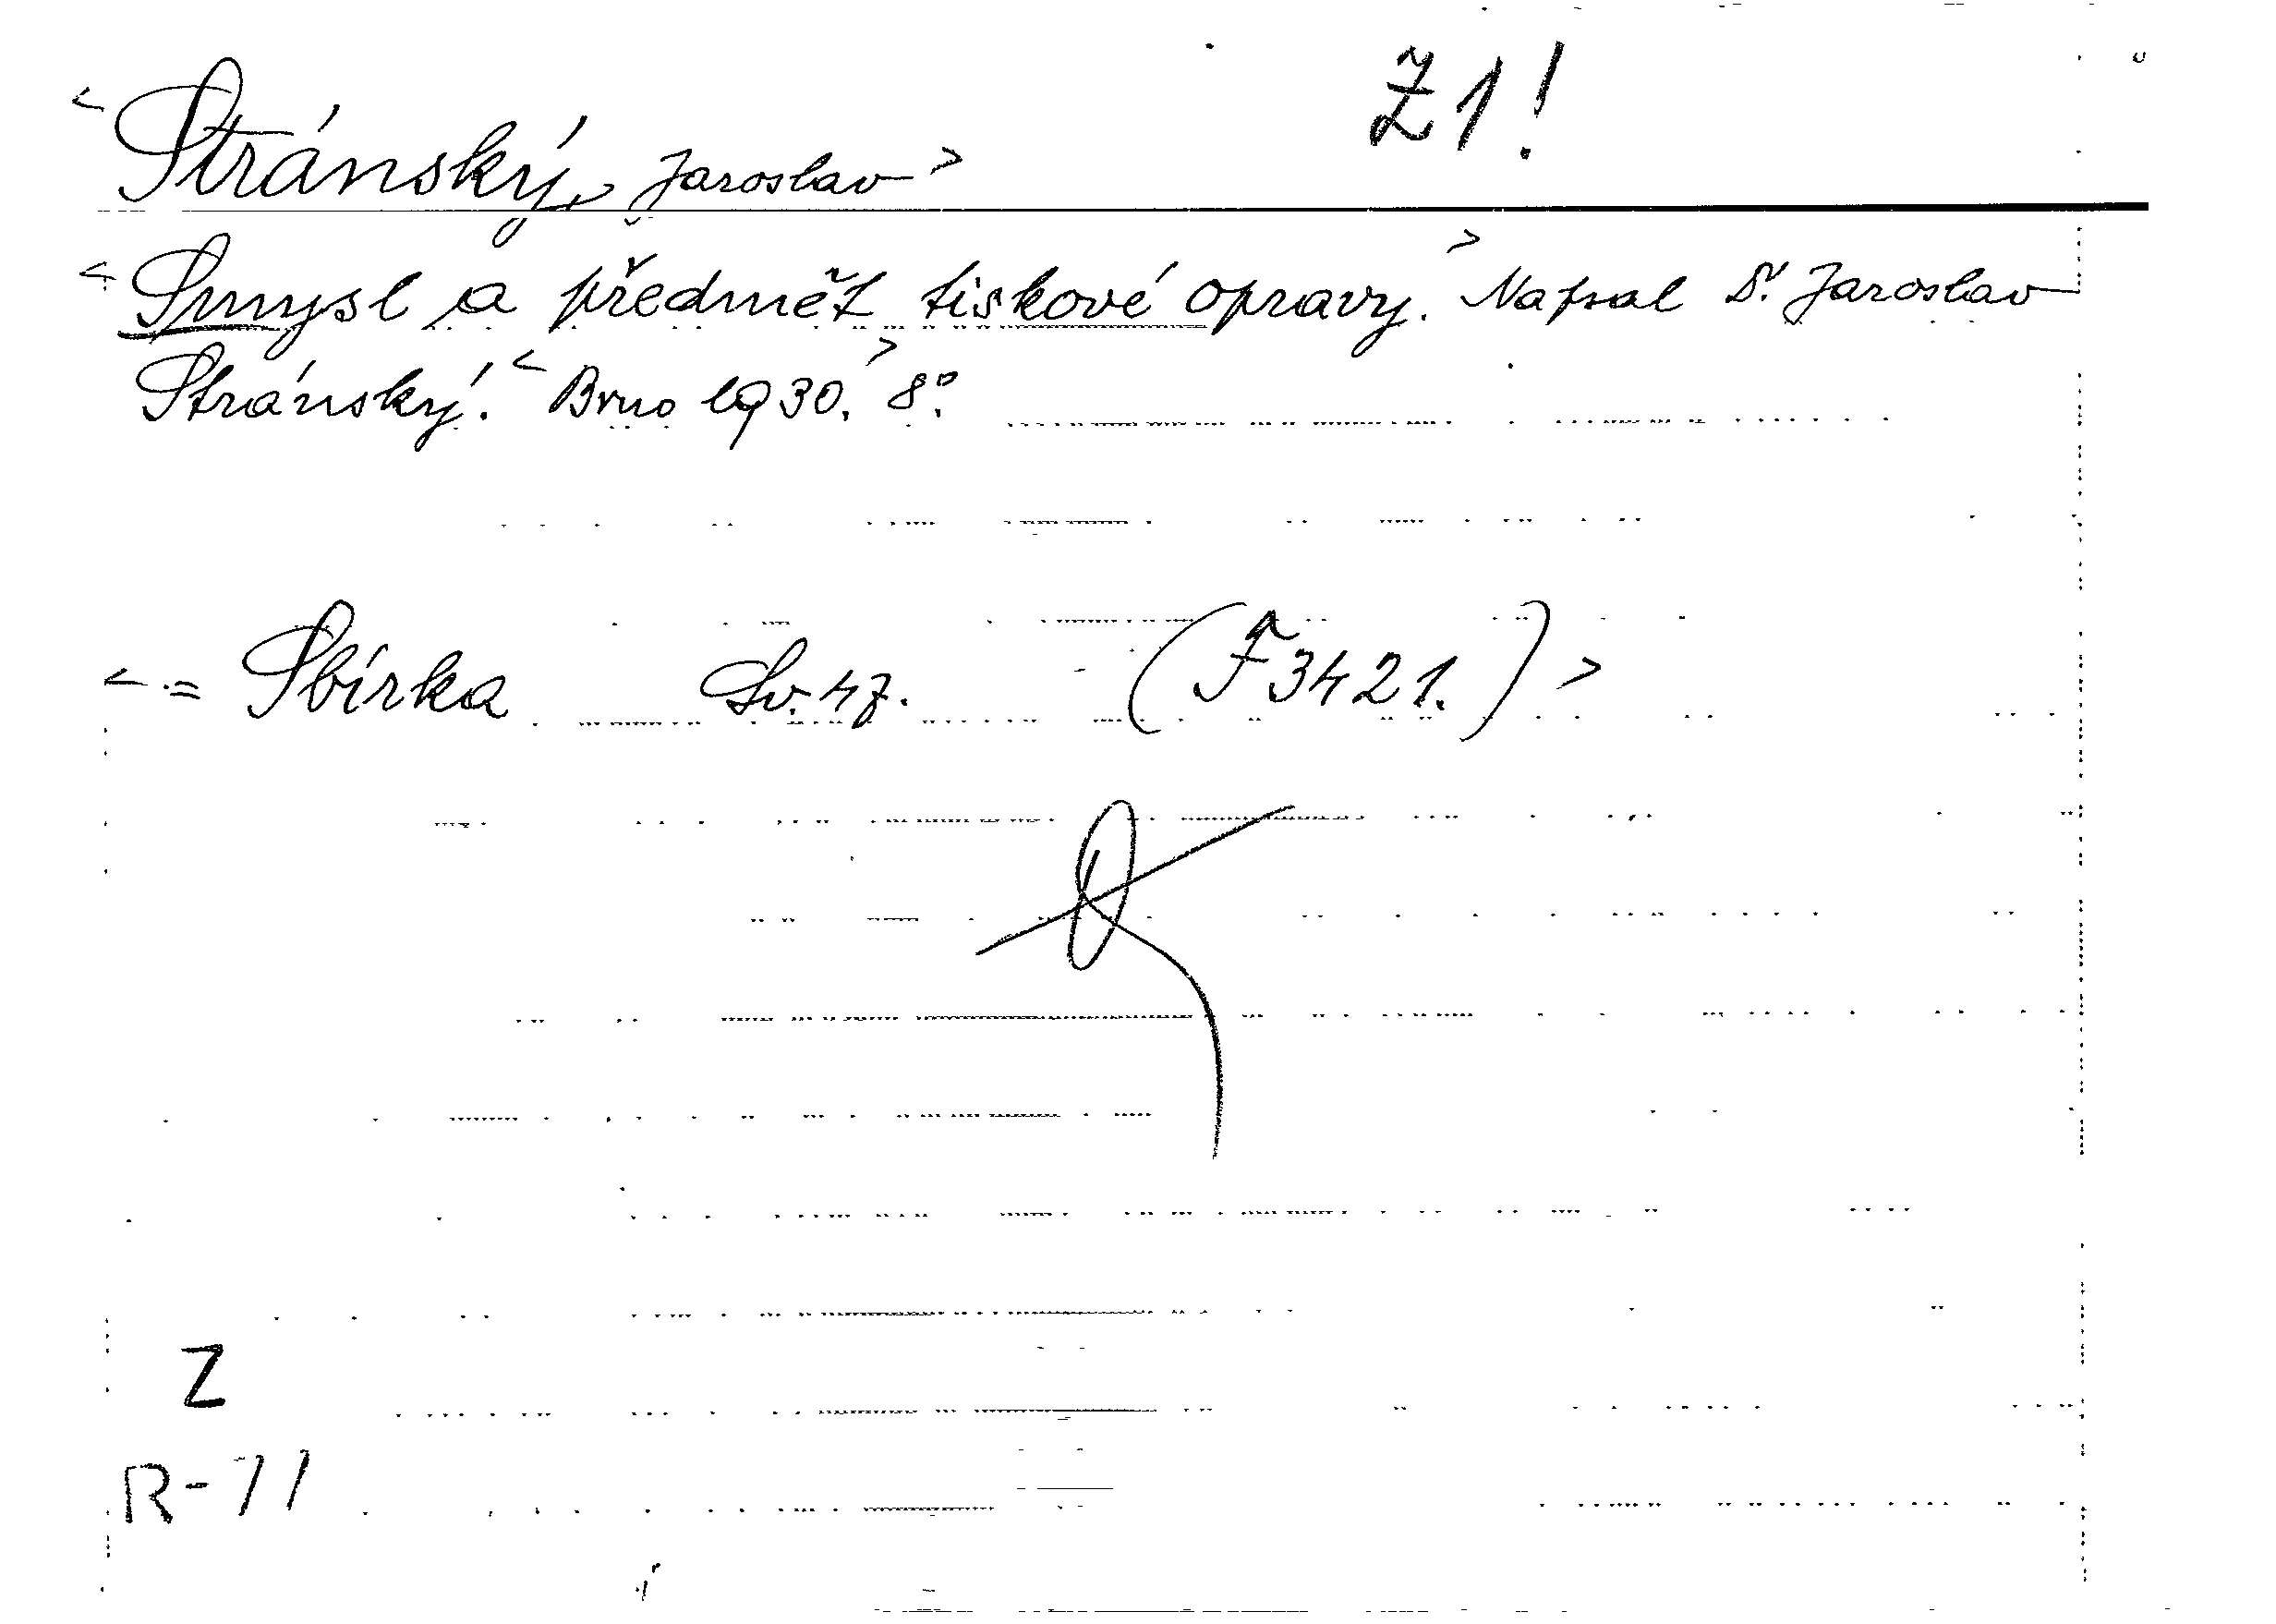 Ž1!
<Stránský, Jaroslav>
<Smysl a předmět tiskové opravy.> Napsal Dr. Jaroslav
Stránský. <Brno 1930.> 8°.
<= Sbírka Sv. 47. (F 3421.)>
Z
R-71